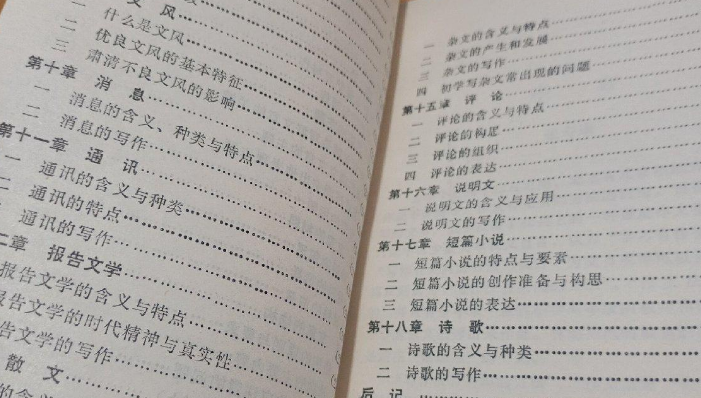 文 风
一 什么是文风
二 优良文风的基本特征
三 肃清不良文风的影响
第十章 消 息
一 消息的含义、种类与特点
二 消息的写作
第十一章 通 讯
一 通讯的含义与种类
二 通讯的特点
通讯的写作
二章 报告文学
报告文学的含义与特点
报告文学的时代精神与真实性
告文学的写作
散 文
的含义
一 杂文的含义与特点
二 杂文的产生和发展
三 杂文的写作
四 初学写杂文常出现的问题
第十五章 评 论
一 评论的含义与特点
二 评论的构思
三 评论的组织
四 评论的表达
第十六章 说明文
一 说明文的含义与应用
二 说明文的写作
第十七章 短篇小说
一 短篇小说的特点与要素
二 短篇小说的创作准备与构思
三 短篇小说的表达
第十八章 诗 歌
一 诗歌的含义与种类
二 诗歌的写作
后 记